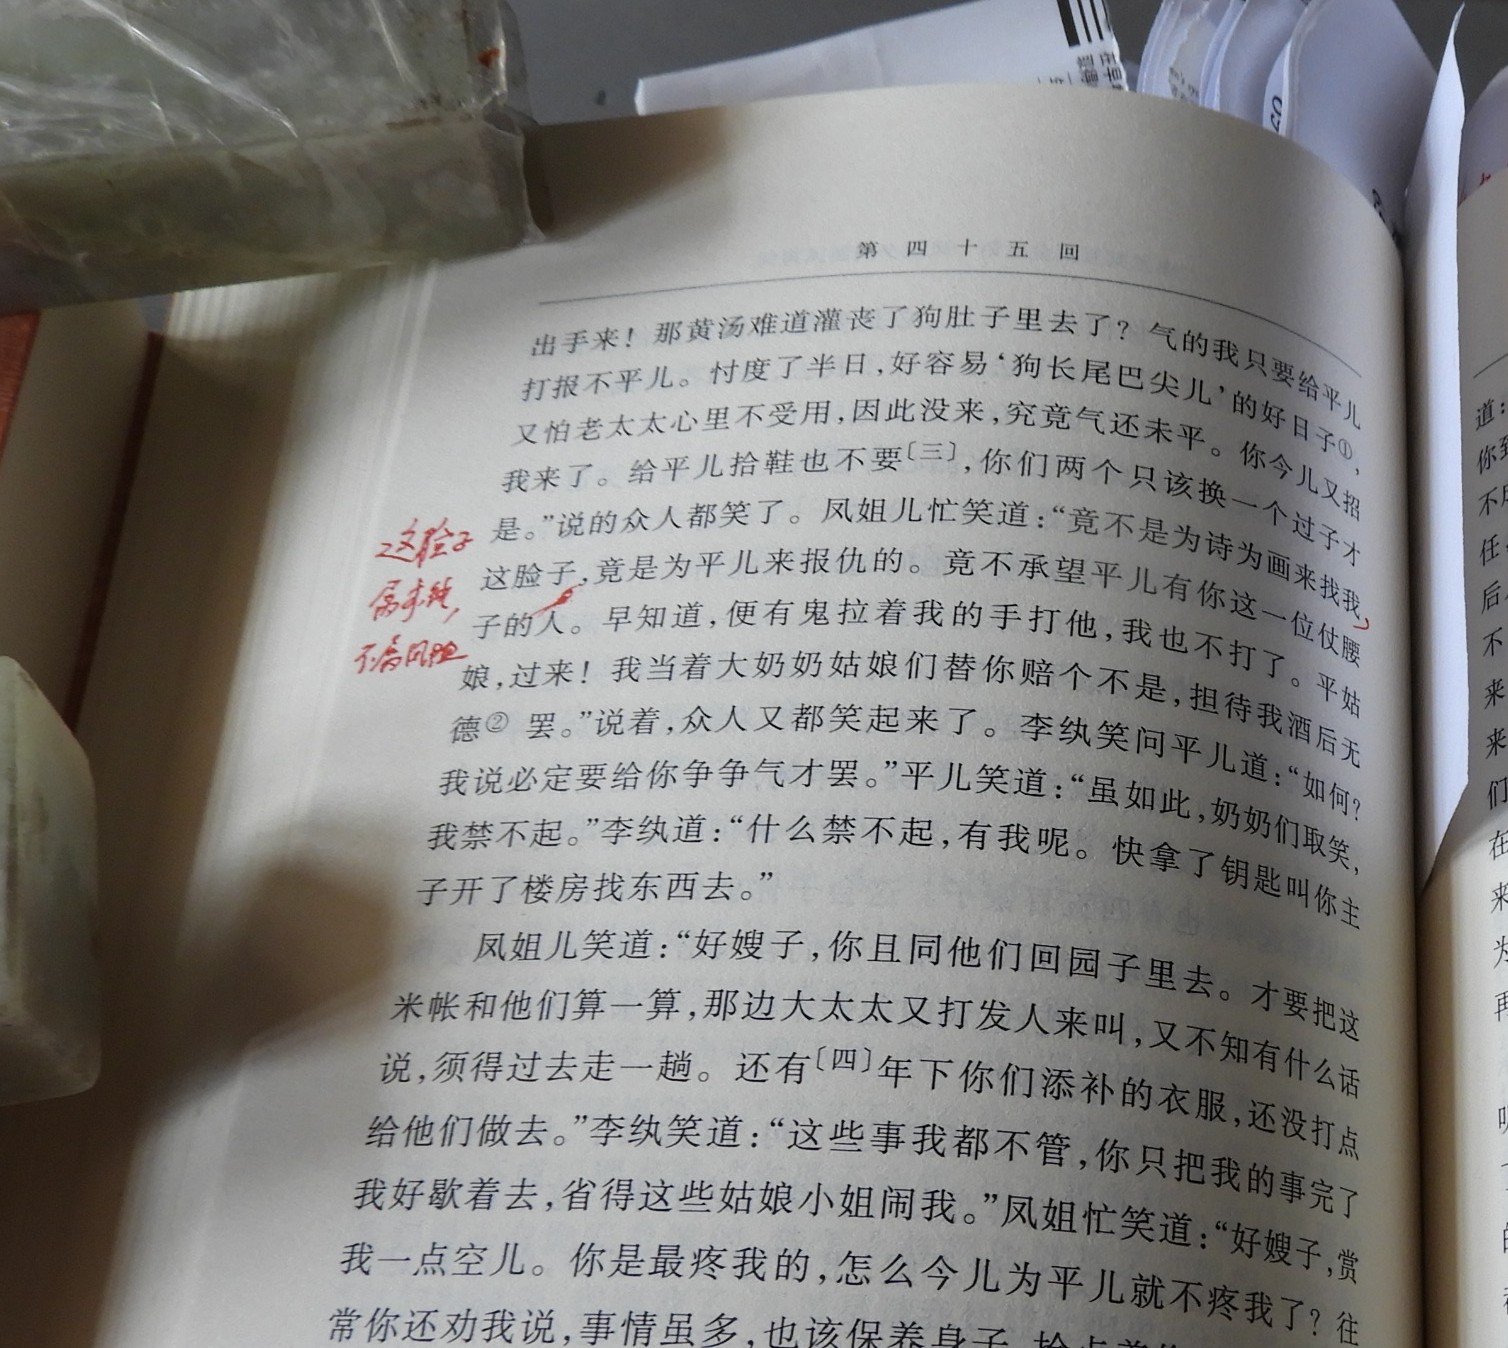 第四十五回
出手来！那黄汤难道灌丧了狗肚子里去了？气的我只要给平儿
打报不平儿。忖度了半日，好容易‘狗长尾巴尖儿’的好日子①，
又怕老太太心里不受用，因此没来，究竟气还未平。你今儿又招
我来了。给平儿拾鞋也不要〔三〕，你们两个只该换一个过子才
是。”说的众人都笑了。凤姐儿忙笑道：“竟不是为诗为画来找我，
这脸子，竟是为平儿来报仇的。竟不承望平儿有你这一位仗腰
子的人。早知道，便有鬼拉着我的手打他，我也不打了。平姑
娘，过来！我当着大奶奶姑娘们替你赔个不是，担待我酒后无
德② 罢。”说着，众人又都笑起来了。李纨笑问平儿道：“如何？
我说必定要给你争争气才罢。”平儿笑道：“虽如此，奶奶们取笑，
我禁不起。”李纨道：“什么禁不起，有我呢。快拿了钥匙叫你主
子开了楼房找东西去。”
凤姐儿笑道：“好嫂子，你且同他们回园子里去。才要把这
米帐和他们算一算，那边大太太又打发人来叫，又不知有什么话
说，须得过去走一趟。还有〔四〕年下你们添补的衣服，还没打点
给他们做去。”李纨笑道：“这些事我都不管，你只把我的事完了
我好歇着去，省得这些姑娘小姐闹我。”凤姐忙笑道：“好嫂子，赏
我一点空儿。你是最疼我的，怎么今儿为平儿就不疼我了？往
常你还劝我说，事情虽多，也该保养身子
这脸子
属李纨，
不属凤姐
道：
不
任
后
不
来
来
们
在
来
再